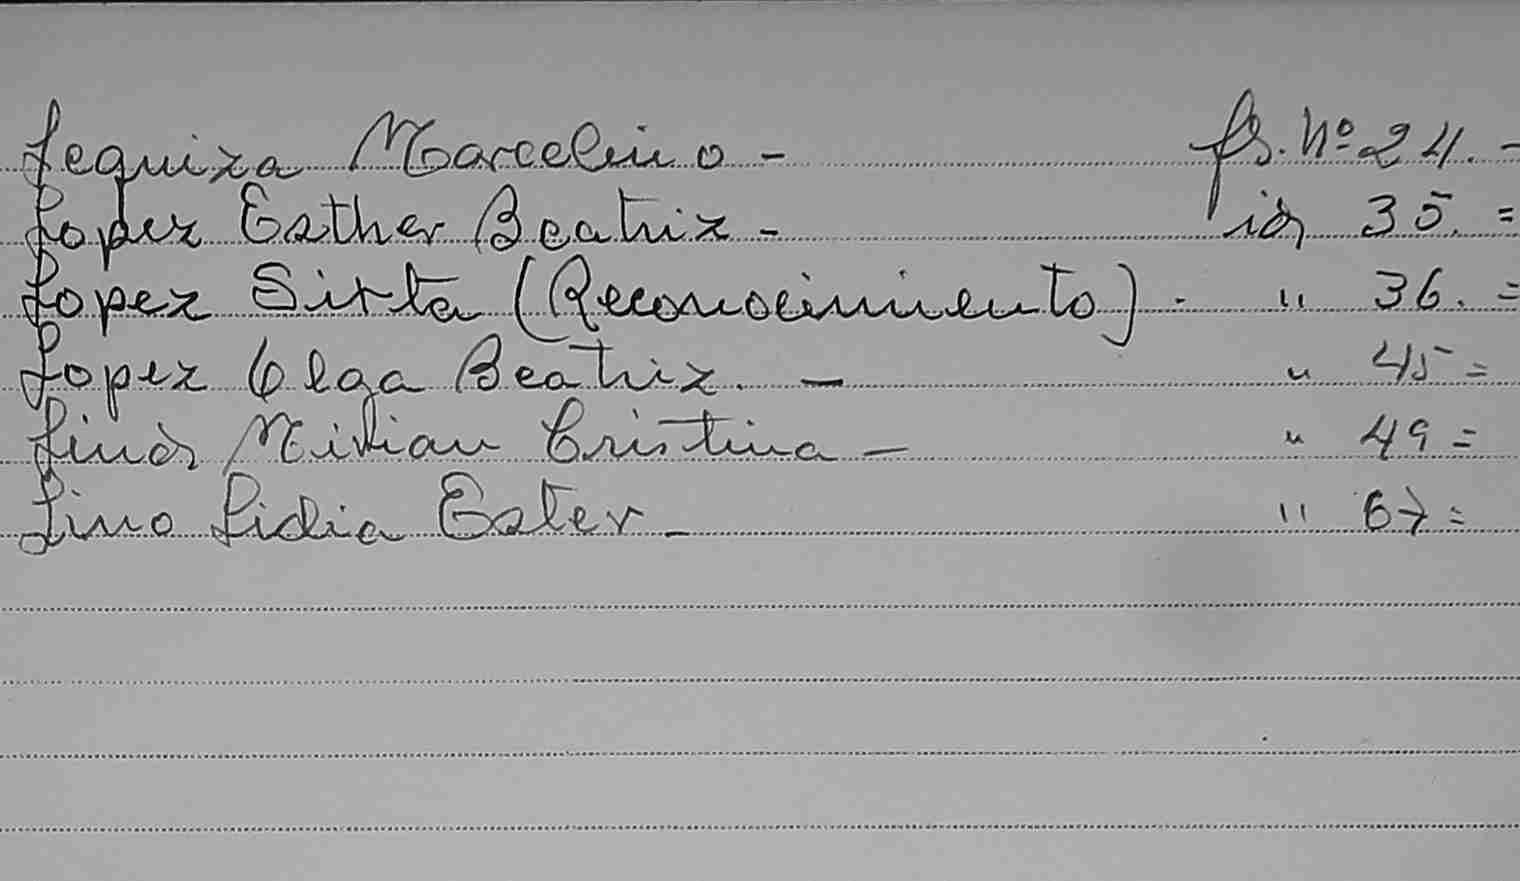 Lequiza Marcelino - fs. Nº 24. -
Lopez Esther Beatriz - id 35. =
Lopez Sixta (Reconocimiento). " 36. =
Lopez Olga Beatriz. - " 45 =
Mirian Cristina - " 49 =
Lino Lidia Ester - " 67 =